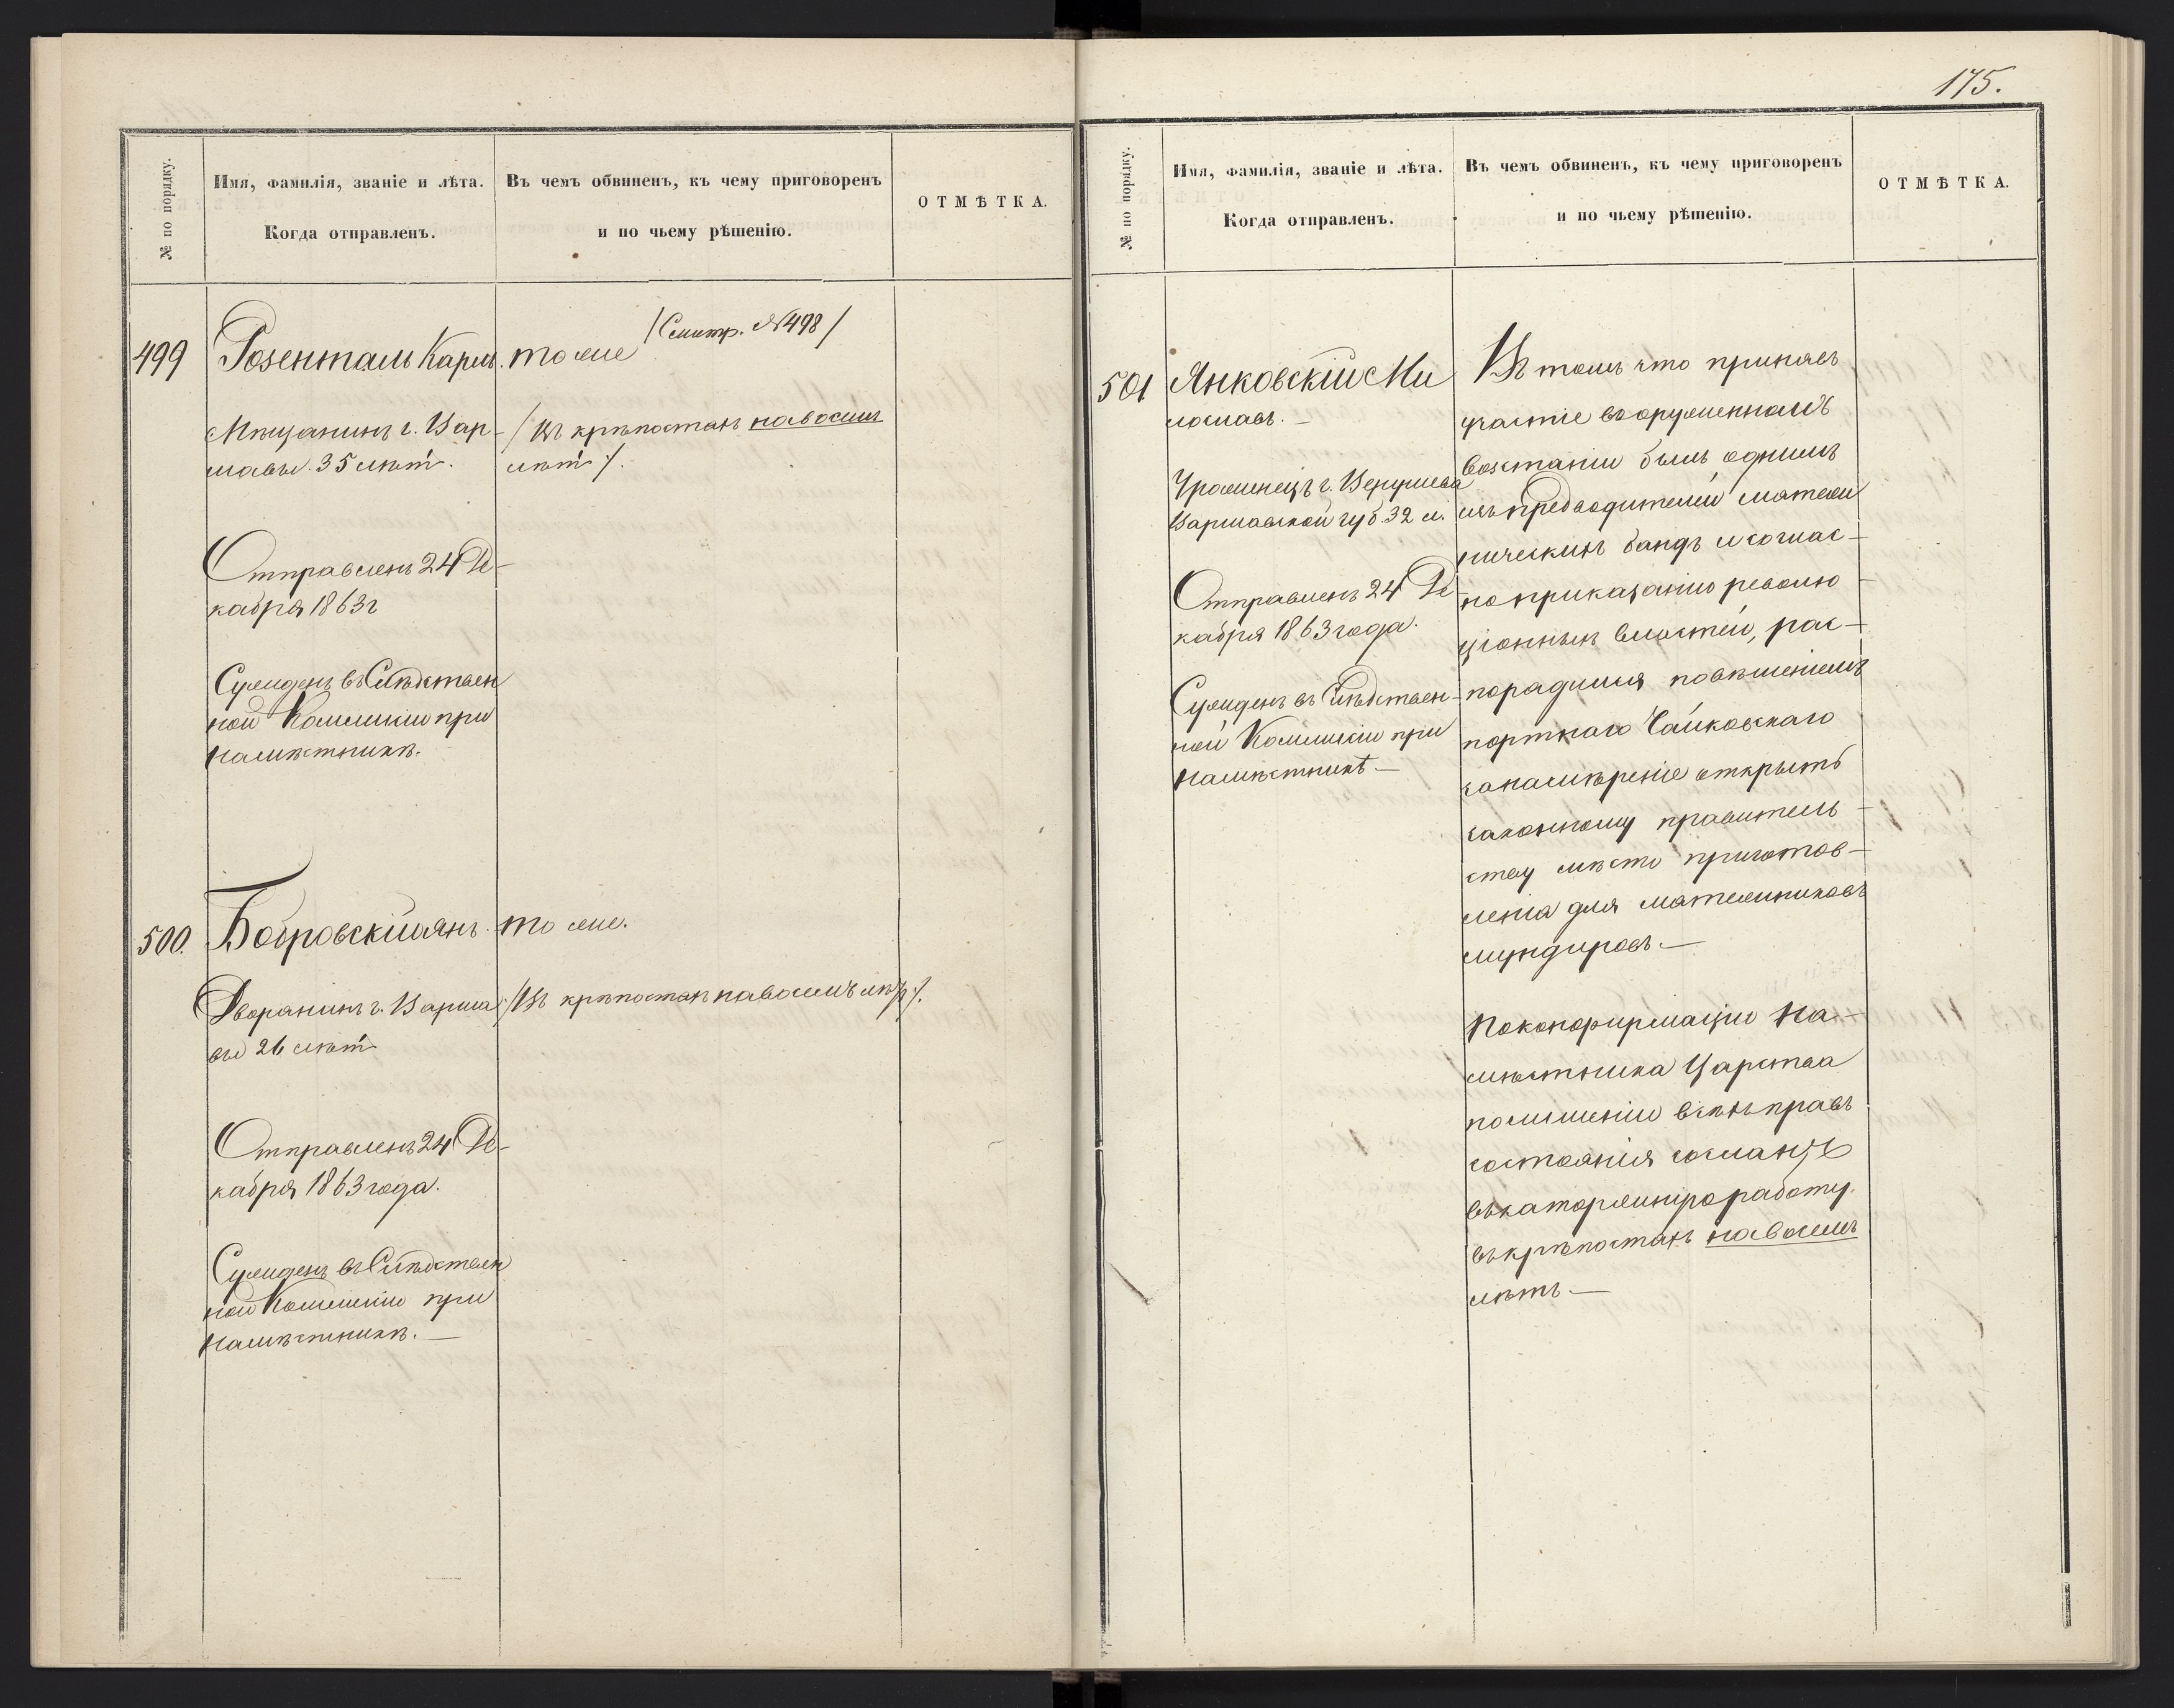 № по порядку.
Имя, фамилія, званіе и лѣта.
Когда отправленъ.
Въ чемъ обвиненъ, къ чему приговоренъ
и по чьему рѣшенію.
ОТМѢТКА.
499
Розенталь Карлъ.
Мѣщанинъ г. Вар-
шавы. 35 лѣтъ.
Отправленъ 24 Де-
кабря 1863 г
Сужденъ въ Слѣдствен
ной Коммисіи при
Намѣстникѣ.
/Смотр. № 498/
тоже
/Въ крѣпостяхъ на восемь
лѣтъ/.
500.
Бобровскій Янъ.
Дворянинъ г. Варша
вы 26 лѣтъ
Отправленъ 24 Де-
кабря 1863 года.
Сужденъ въ Слѣдствен
ной Коммисіи при
Намѣстникѣ. —
то же.
/Въ крѣпостяхъ на восемь лѣтъ/.
175.
№ по порядку.
Имя, фамилія, званіе и лѣта.
Когда отправленъ.
Въ чемъ обвиненъ, къ чему приговоренъ
и по чьему рѣшенію.
ОТМѢТКА.
501
Янковскій Ми
лославъ. —
Уроженецъ г.
Варшавской губ. 32 л.
Отправленъ 24 Де
кабря 1863 года.
Сужденъ въ Слѣдствен-
ной Коммисіи при
Намѣстникѣ —
Въ томъ что принявъ
участіе въ оруженномъ
возстаніи былъ однимъ
изъ предводителей мятеж
ническихъ бандъ и соглас-
но приказанію револю-
ціонныхъ властей, рас-
порядился повѣшеніемъ
портнаго Чайковскаго
за намѣреніе открыть
законному правитель-
ству мѣсто приготов-
ленія для мятежниковъ
мундировъ. —
По конфирмаціи На-
мѣстника Царства
по лишеніи всѣхъ правъ
состоянія сосланъ
въ каторжную работу.
въ крѣпостяхъ на восемь
лѣтъ. —